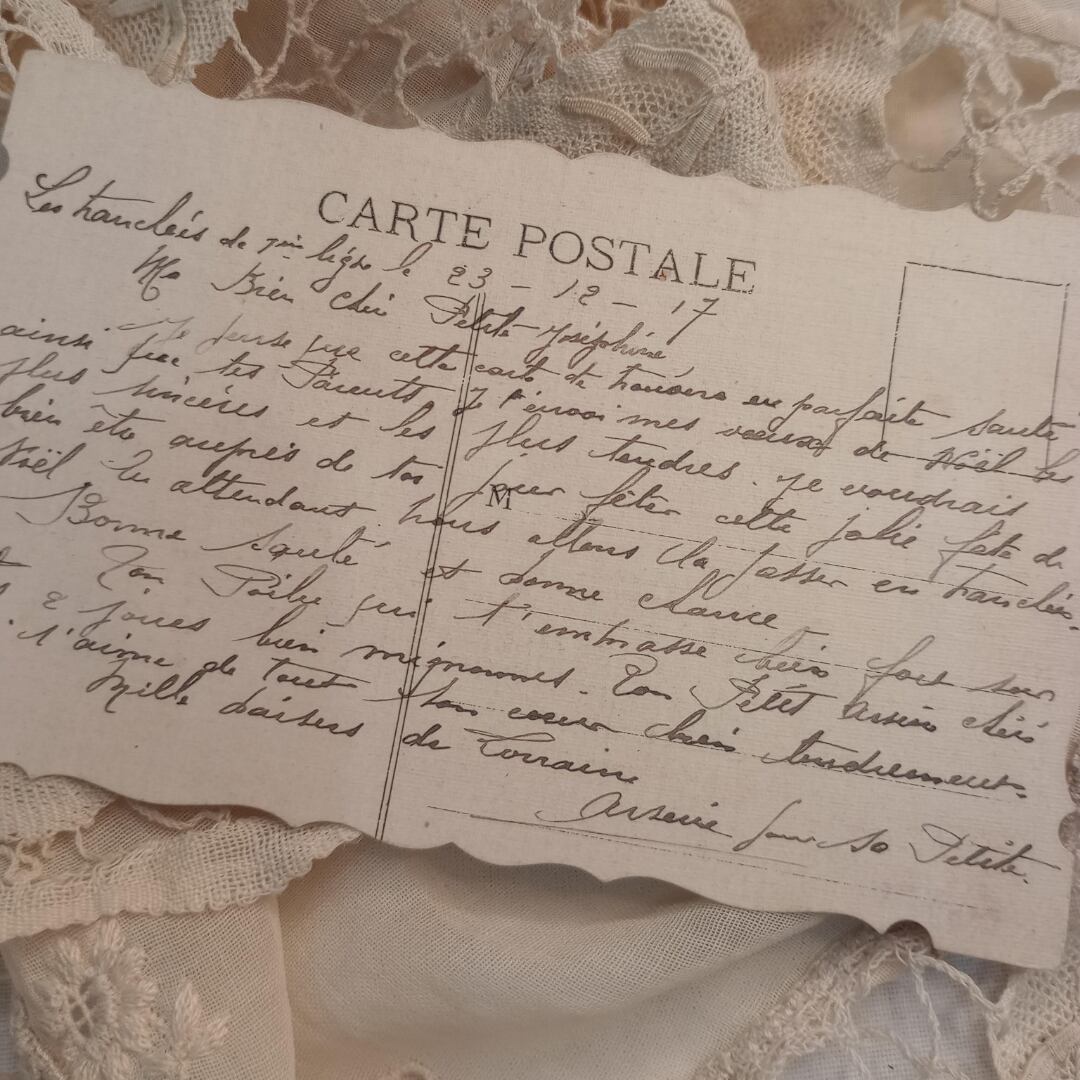 CARTE POSTALE
Les tranchées de 1ère ligne le 23 - 12 - 17
Ma Bien chère Petite Joséphine
Je pense que cette carte te trouvera en parfaite santé
ainsi que tes Parents, Je t'envoi mes vœux de Noël les
plus sincères et les plus tendres. Je voudrais
bien être auprès de toi pour fêter cette jolie fête de
Noël en attendant nous allons la passer en tranchée.
Bonne Santé et bonne chance
Ton Poilu qui t'embrasse bien fort sur
2 joues bien mignonnes. Ton Petit Arsène chéri
t'aime de tout son cœur bien tendrement.
Mille baisers de Lorraine
Arsène pour sa Petite.
M